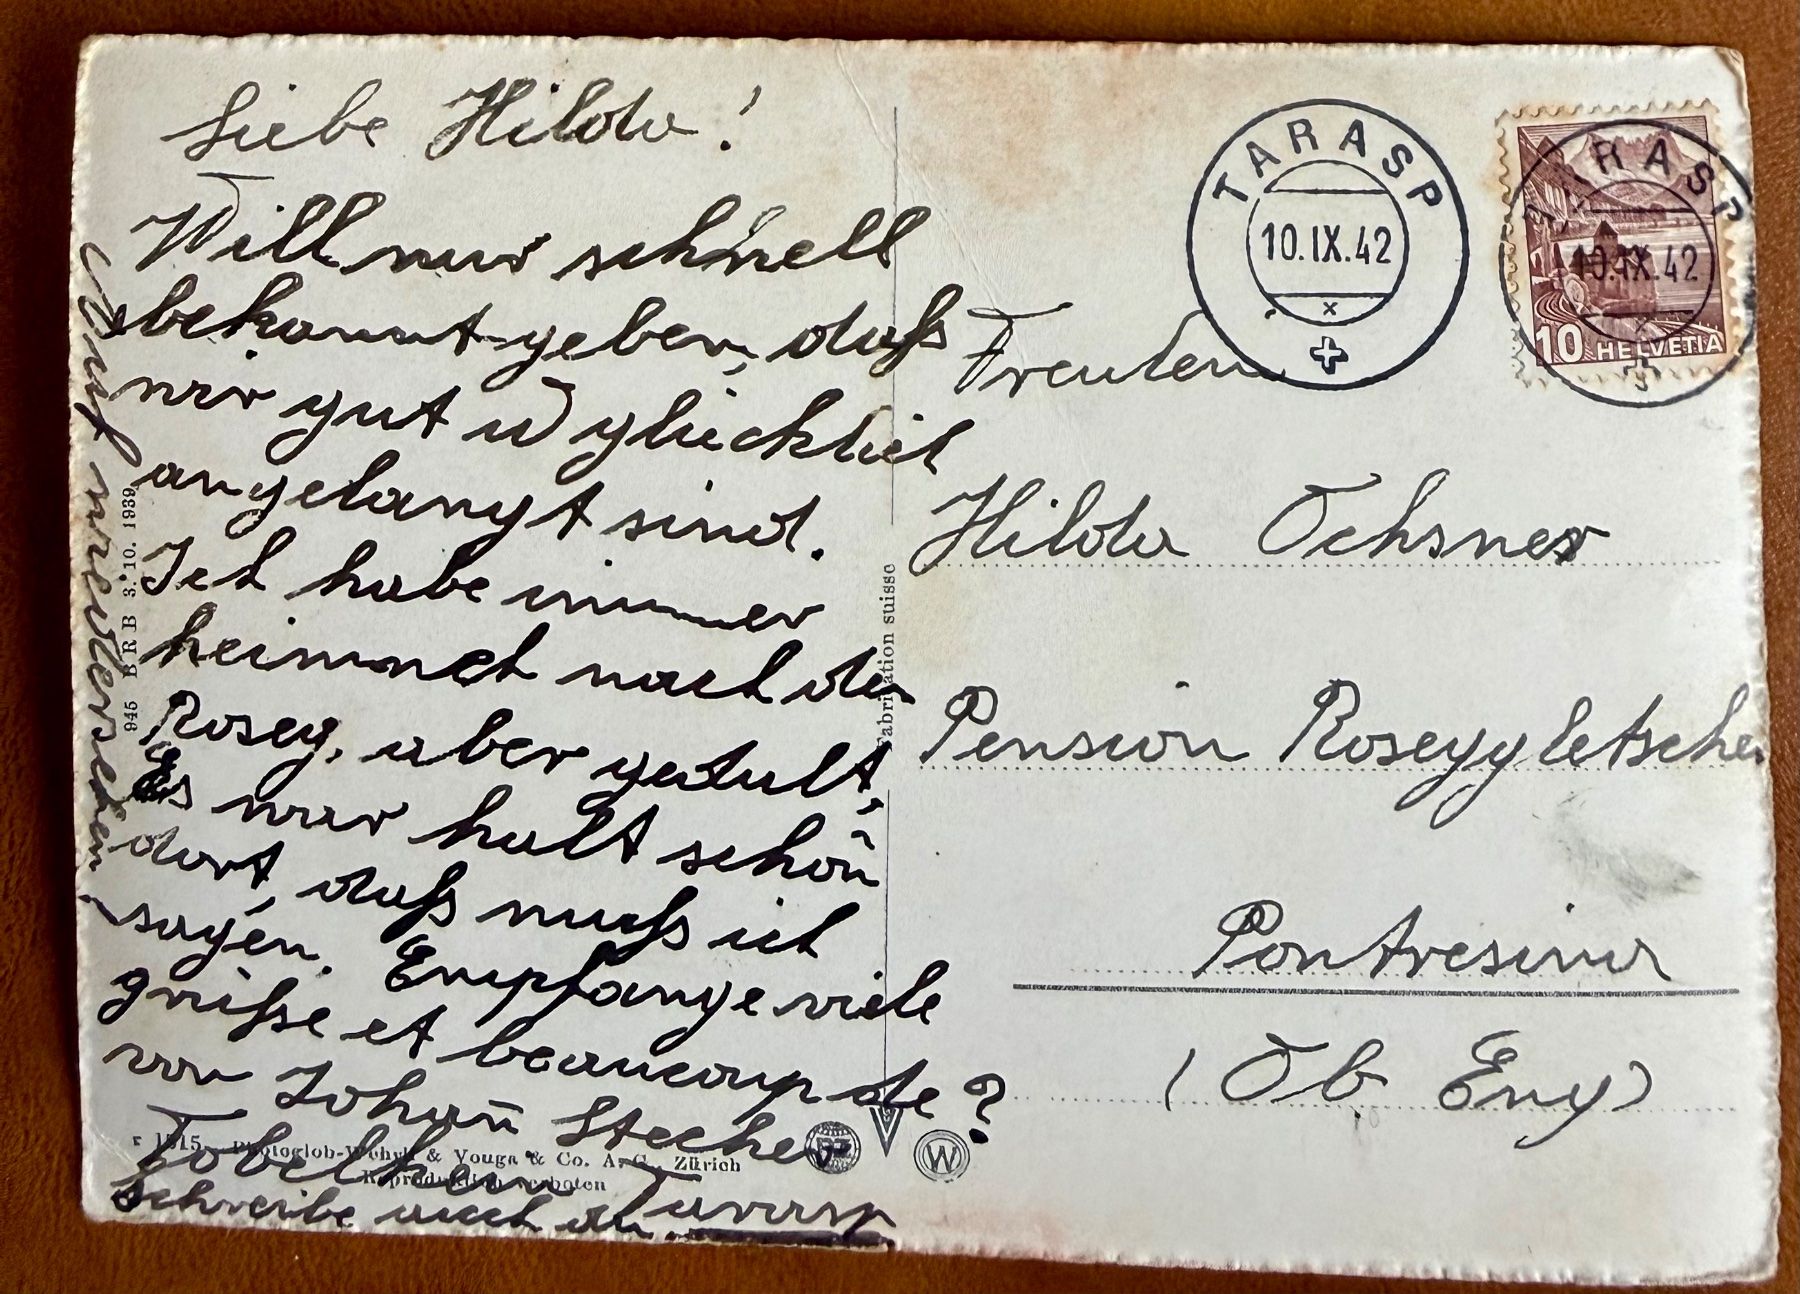 Liebe Hilda!
Will nur schnell
bekannt geben, daß
wir gut u glücklich
angelangt sind.
Ich habe immer
heimweh nach der
Rosey, aber gedult,
Es war halt schön
dort, daß muß ich
sagen. Empfange viele
grüße et beaucoup de ?
von Johan̄ Stecher
Tarasp
schreibe auch du.
Auf wiedersehen!
945 BRB 3.10.1939
Fabrication suisse
Photoglob-Wehrli & Vouga & Co. A.G., Zürich
Reproduktion verboten
PZ
W
TARASP
10.IX.42
x
TARASP
10.IX.42
10 HELVETIA
Freulein
Hilda Ochsner
Pension Roseggletscher
Pontresina
(Ob Eng)